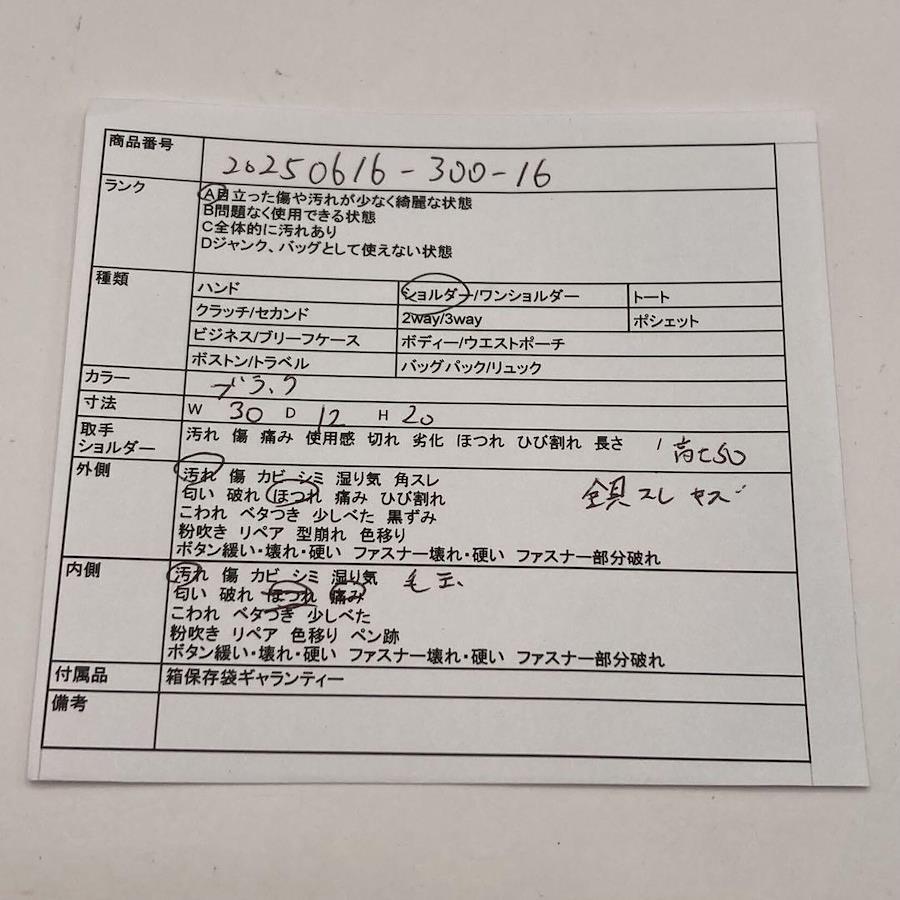 商品番号 20250616-300-16
ランク A目立った傷や汚れが少なく綺麗な状態
B問題なく使用できる状態
C全体的に汚れあり
Dジャンク、バッグとして使えない状態
種類 ハンド ショルダー/ワンショルダー トート
クラッチ/セカンド 2way/3way ポシェット
ビジネス/ブリーフケース ボディー/ウエストポーチ
ボストン/トラベル バッグパック/リュック
カラー ブラック
寸法 W 30 D 12 H 20
取手
ショルダー 汚れ 傷 痛み 使用感 切れ 劣化 ほつれ ひび割れ 長さ / 高さ50
外側 汚れ 傷 カビ シミ 湿り気 角スレ
匂い 破れ ほつれ 痛み ひび割れ 金具スレ キズ
こわれ ベタつき 少しべた 黒ずみ
粉吹き リペア 型崩れ 色移り
ボタン緩い・壊れ・硬い ファスナー壊れ・硬い ファスナー部分破れ
内側 汚れ 傷 カビ シミ 湿り気 毛玉
匂い 破れ ほつれ 痛み
こわれ ベタつき 少しべた
粉吹き リペア 色移り ペン跡
ボタン緩い・壊れ・硬い ファスナー壊れ・硬い ファスナー部分破れ
付属品 箱保存袋ギャランティー
備考